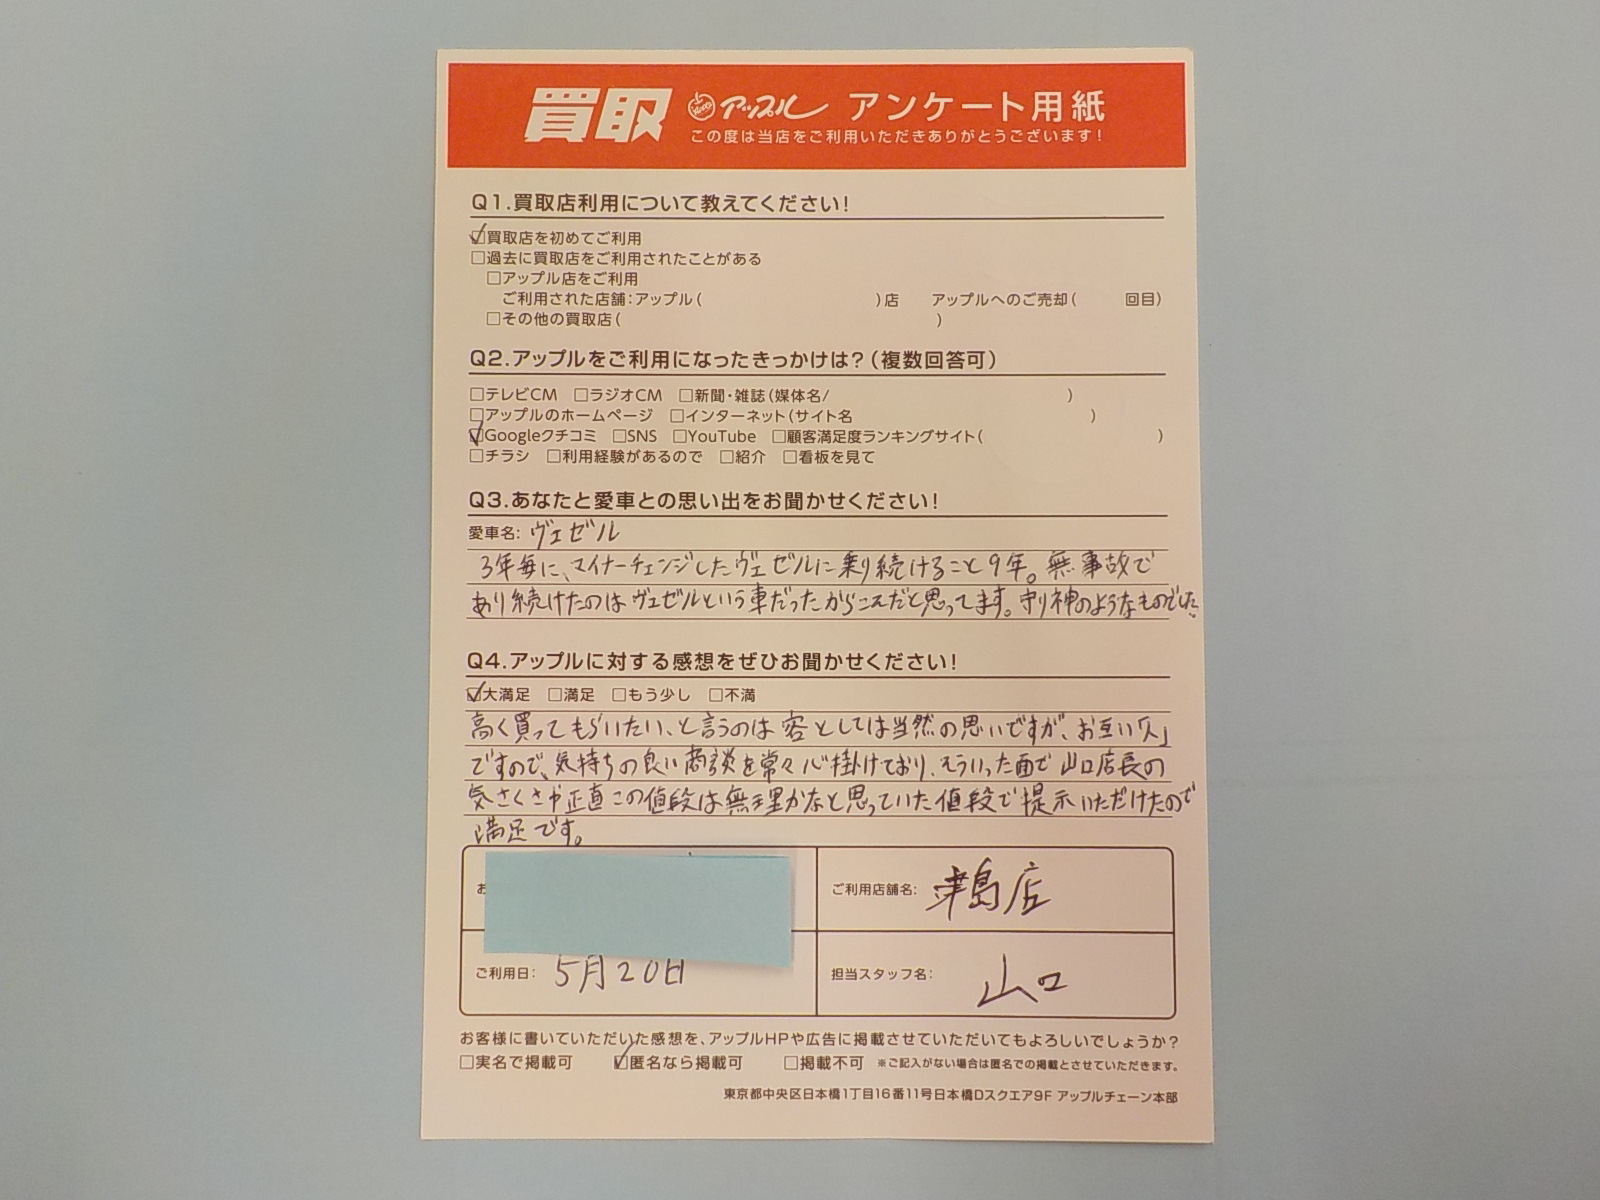 買取 アップル アンケート用紙
この度は当店をご利用いただきありがとうございます!
Q1.買取店利用について教えてください!
☑買取店を初めてご利用
□過去に買取店をご利用されたことがある
□アップル店をご利用
ご利用された店舗:アップル( )店 アップルへのご売却( 回目)
□その他の買取店( )
Q2.アップルをご利用になったきっかけは?(複数回答可)
□テレビCM □ラジオCM □新聞・雑誌(媒体名/ )
□アップルのホームページ □インターネット(サイト名 )
☑Googleクチコミ □SNS □YouTube □顧客満足度ランキングサイト( )
□チラシ □利用経験があるので □紹介 □看板を見て
Q3.あなたと愛車との思い出をお聞かせください!
愛車名: ヴェゼル
3年毎に、マイナーチェンジしたヴェゼルに乗り続けること9年。無事故で
あり続けたのはヴェゼルという車だったからこそだと思ってます。守り神のようなものでした。
Q4.アップルに対する感想をぜひお聞かせください!
☑大満足 □満足 □もう少し □不満
高く買ってもらいたい、と言うのは客としては当然の思いですが、お互い「人」
ですので、気持ちの良い商談を常々心掛けており、そういった面で山口店長の
気さくさや正直この値段は無理かなと思っていた値段で提示いただけたので
満足です。
お
ご利用店舗名: 津島店
ご利用日: 5月20日
担当スタッフ名: 山口
お客様に書いていただいた感想を、アップルHPや広告に掲載させていただいてもよろしいでしょうか?
□実名で掲載可 ☑匿名なら掲載可 □掲載不可 ※ご記入がない場合は匿名での掲載とさせていただきます。
東京都中央区日本橋1丁目16番11号日本橋Dスクエア9F アップルチェーン本部